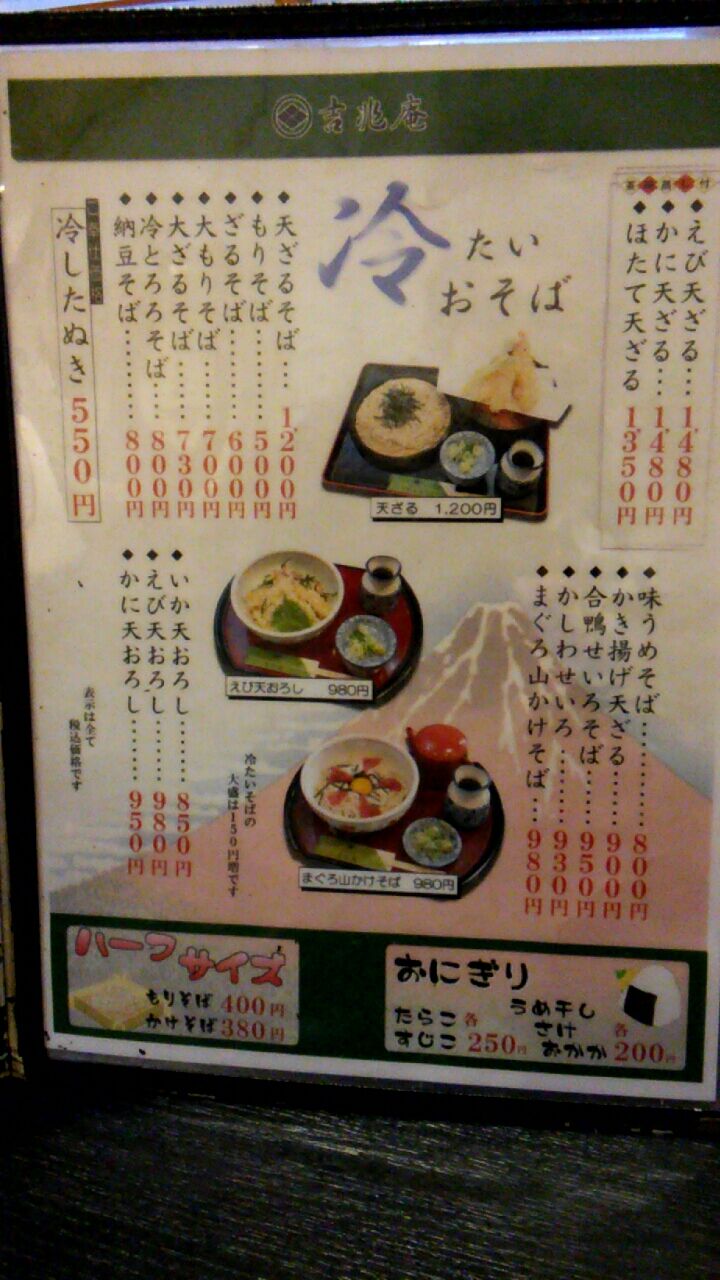 吉兆庵
冷たい
おそば
えび天ざる…1,480円
かに天ざる…1,480円
ほたて天ざる 1,350円
天ざるそば…1,200円
もりそば…500円
ざるそば…600円
大もりそば…700円
大ざるそば…730円
冷とろろそば…800円
納豆そば…800円
冷したぬき 550円
天ざる 1,200円
味うめそば…800円
かき揚げ天ざる…900円
合鴨せいろそば…950円
かしわせいろ…930円
まぐろ山かけそば…980円
えび天おろし 980円
いか天おろし…850円
えび天おろし…980円
かに天おろし…950円
まぐろ山かけそば 980円
冷たいそばの
大盛は150円増です
表示は全て
税込価格です
ハーフサイズ
もりそば 400円
かけそば 380円
おにぎり
たらこ
すじこ 各250円
うめ干し
さけ
おかか 各200円